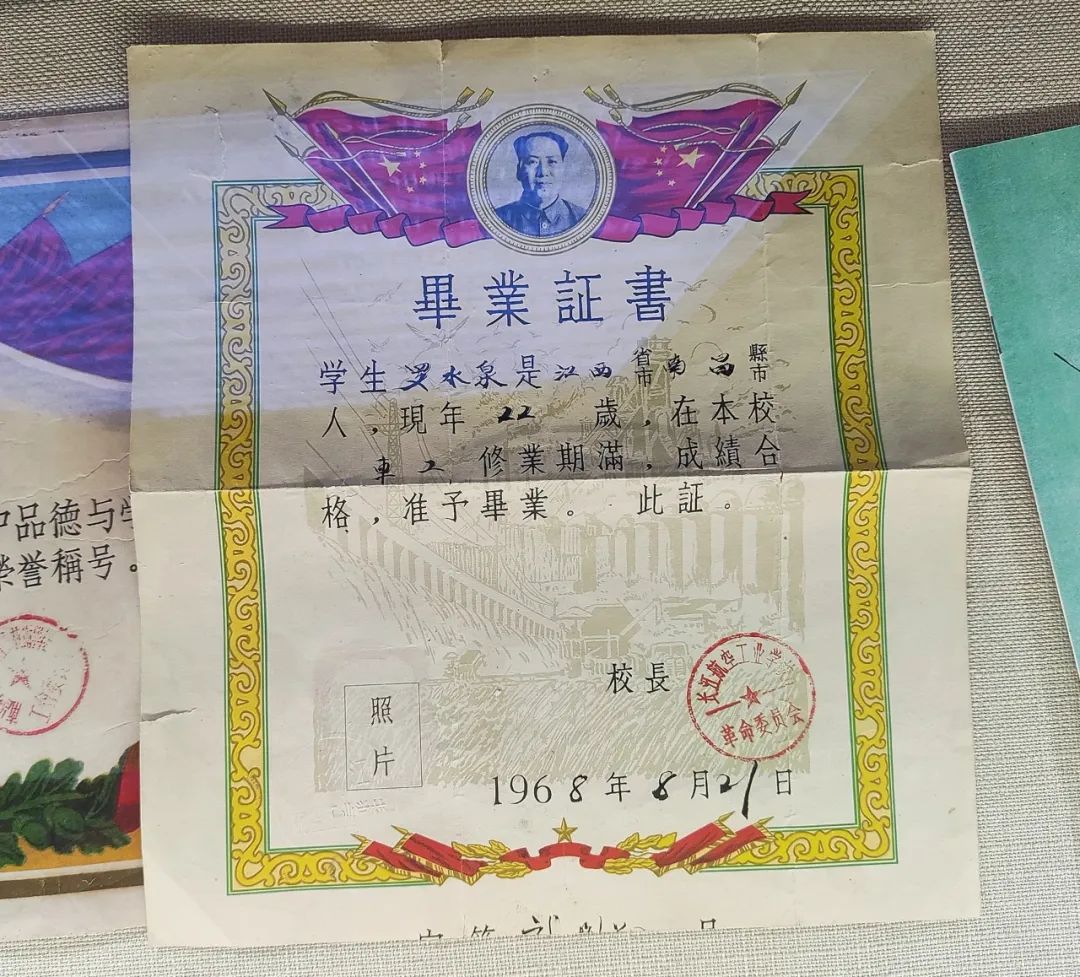 畢業証書
学生罗水泉是江西省市南昌縣市
人，現年22歲，在本校
車工修業期滿，成績合
格，准予畢業。此証。
校長
航空工业学
革命委员会
照片
1968年8月21日
品德与学
榮誉稱号。